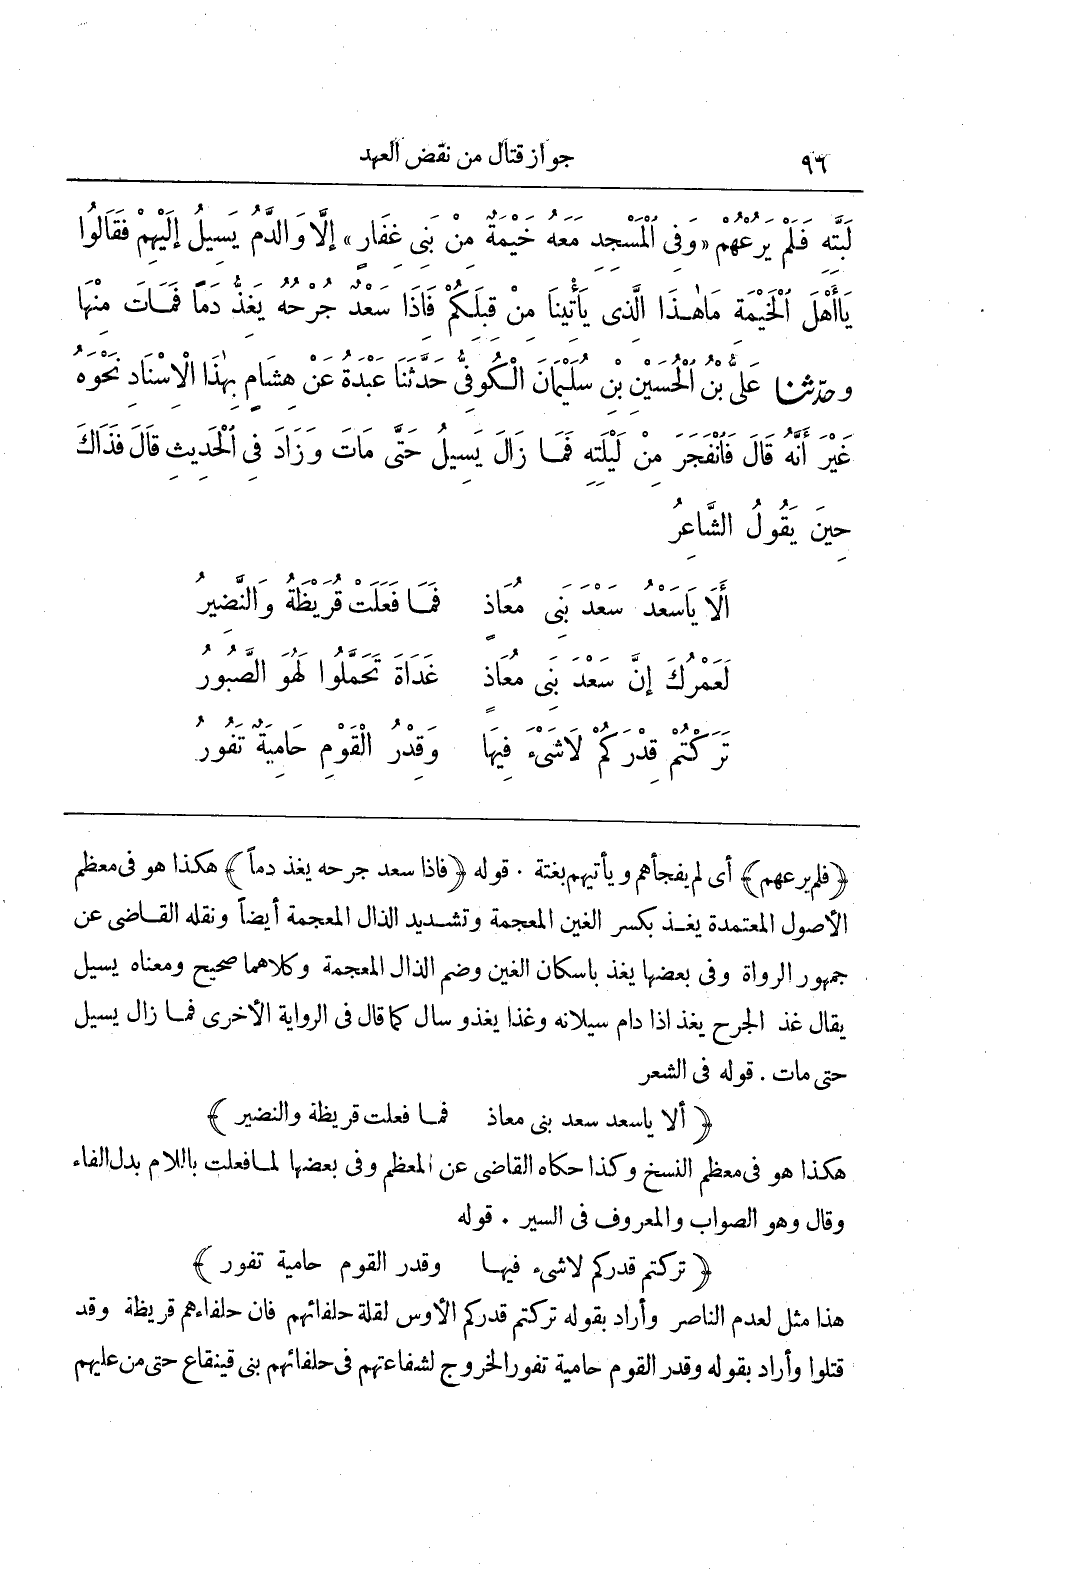 ٩٦ جواز قتال من نقض العهد
لَبَّتِهِ فَلَمْ يَرُعْهُمْ «وَفِى الْمَسْجِدِ مَعَهُ خَيْمَةٌ مِنْ بَنِى غِفَارٍ» إِلَّا وَالدَّمُ يَسِيلُ إِلَيْهِمْ فَقَالُوا
يَاأَهْلَ الْخَيْمَةِ مَاهٰذَا الَّذِى يَأْتِينَا مِنْ قِبَلِكُمْ فَإِذَا سَعْدٌ جُرْحُهُ يَغِذُّ دَمًا فَمَاتَ مِنْهَا
وحدثنا عَلِىُّ بْنُ الْحُسَيْنِ بْنِ سُلَيْمَانَ الْكُوفِىُّ حَدَّثَنَا عَبْدَةُ عَنْ هِشَامٍ بِهٰذَا الْاِسْنَادِ نَحْوَهُ
غَيْرَ أَنَّهُ قَالَ فَانْفَجَرَ مِنْ لَيْلَتِهِ فَمَا زَالَ يَسِيلُ حَتَّى مَاتَ وَزَادَ فِى الْحَدِيثِ قَالَ فَذَاكَ
حِينَ يَقُولُ الشَّاعِرُ
أَلَا يَاسَعْدُ سَعْدَ بَنِى مُعَاذٍ فَمَا فَعَلَتْ قُرَيْظَةُ وَالنَّضِيرُ
لَعَمْرُكَ إِنَّ سَعْدَ بَنِى مُعَاذٍ غَدَاةَ تَحَمَّلُوا لَهُوَ الصَّبُورُ
تَرَكْتُمْ قِدْرَكُمْ لَاشَىْءَ فِيهَا وَقِدْرُ الْقَوْمِ حَامِيَةٌ تَفُورُ
﴿فلم يرعهم﴾ أى لم يفجأهم ويأتيهم بغتة . قوله ﴿فاذا سعد جرحه يغذ دماً﴾ هكذا هو فى معظم
الأصول المعتمدة يغذ بكسر الغين المعجمة وتشديد الذال المعجمة أيضاً ونقله القاضى عن
جمهور الرواة وفى بعضها يغذ باسكان الغين وضم الذال المعجمة وكلاهما صحيح ومعناه يسيل
يقال غذ الجرح يغذ اذا دام سيلانه وغذا يغذو سال كما قال فى الرواية الأخرى فما زال يسيل
حتى مات . قوله فى الشعر
﴿ ألا ياسعد سعد بنى معاذ فما فعلت قريظة والنضير ﴾
هكذا هو فى معظم النسخ وكذا حكاه القاضى عن المعظم وفى بعضها لما فعلت باللام بدل الفاء
وقال وهو الصواب والمعروف فى السير . قوله
﴿ تركتم قدركم لاشىء فيها وقدر القوم حامية تفور ﴾
هذا مثل لعدم الناصر وأراد بقوله تركتم قدركم الأوس لقلة حلفائهم فان حلفاءهم قريظة وقد
قتلوا وأراد بقوله وقدر القوم حامية تفور الخروج لشفاعتهم فى حلفائهم بنى قينقاع حتى من عليهم